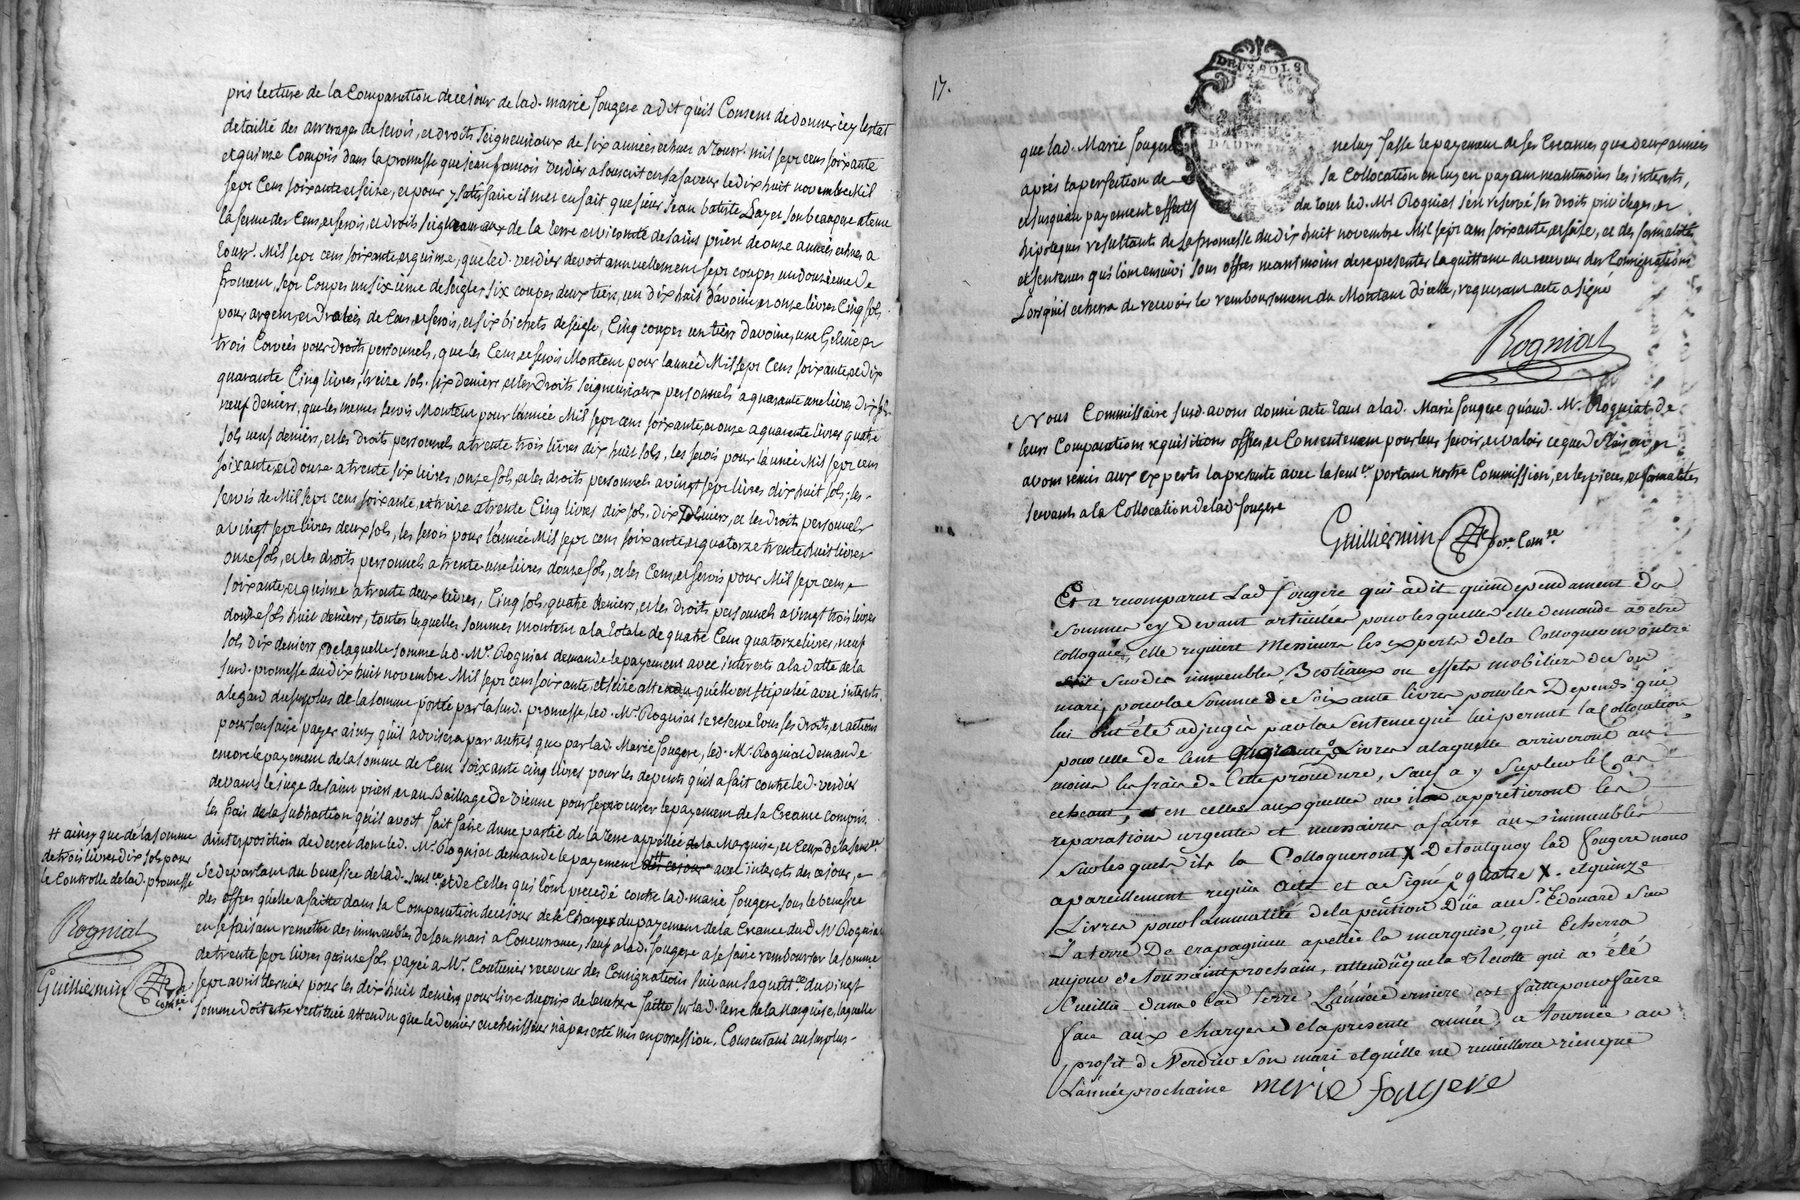 pris lecture de la Comparution de ce jour de lad. marie fougere a dit qu'il Consent de donner icy l'estat
detaillé des arrerages de servis, et droits seigneuriaux de six années echues a Touss. mil sept cens soixante
et quinze Compris dans la promesse que jean francois verdier a souscrit en sa faveur le dix huit novembre Mil
sept Cens soixante et seize, et pour y satisfaire il met en fait que sieur Jean Batiste Layer son beaupere a tenu
la ferme des Cens, et servis, et droits seigneuriaux de la Terre et vicomté de saint priest de onze années echues a
Touss. Mil sept cens soixante et quinze, que led. verdier devoit annuellement sept coupes un douzieme de
froment, sept Coupes un sixieme de seigle, six coupes deux tiers, un dix huit d'avoine et onze livres Cinq sols
pour argent, et de Cens, et servis, et six bichets de seigle, Cinq coupes un tiers d'avoine, une Geline et
trois Corvées pour droits personnels, que les Cens, et servis Montent pour l'année Mil sept Cens soixante et dix
quarante Cinq livres, treize sols six deniers et les Droits seigneuriaux personnels a quarante une livres dix sols
neuf deniers, que les memes servis Montent pour l'année Mil sept cens soixante, et onze a quarente livres quatre
sols neuf deniers, et les droits personnels a trente trois livres dix huit sols, les servis pour l'année Mil sept cens
soixante, et douze a trente six livres, onze sols, et les droits personnels a vingt sept livres dix huit sols, les
servis de Mil sept cens soixante, et treize a trente Cinq livres dix sols Dix Deniers, et les droits personnels
a vingt sept livres deux sols, les servis pour l'année Mil sept cens soixante et quatorze trente huit livres
onze sols, et les droits personnels a trente une livres douze sols, et les Cens, et servis pour Mil sept cens
soixante, et quinze a trente deux livres, Cinq sols, quatre deniers, et les droits personnels a vingt trois livres
douze sols huit deniers, toutes lesquelles sommes montent a la totale de quatre Cens quatorze livres, neuf
sols Dix deniers, De laquelle somme led. Mr. Rogniat demande le payement avec interests a la datte de la
susd. promesse du dix huit novembre Mil sept cens soixante, et seize attendu qu'elle en stipulée avec interests
a l'egard du surplus de la somme portée par la susd. promesse, led. Mr Rogniat se reserve tous ses droits, et actions
pour s'en faire payer ainsy qu'il advisera par autres que par lad. Marie fougere, led. Mr. Rogniat demande
encore le payement de la somme de Cent soixante cinq livres pour les depents qu'il a fait contre led. verdier
devant le juge de saint priest et au Baillage De vienne pour se procurer le payement de sa Creance compris
les frais de la subhastion qu'il avoit fait faire d'une partie de la Terre appellée de la Marquise, et Ceux de la sence.
d'interposition de decret dont led. Mr. Rogniat demande le payement avec interests de ce jour, et
se departant du benefice de lad. sence, et de Celles qui l'ont precedé contre lad. marie fougere sous le benefice
des offres qu'elle a faitte dans sa Comparution de ce jour de se Charger du payement de la Creance dud. Mr Rogniat
en se faisant remettre des immeubles de son mari a Concurrance, sauf a lad. fougere a se faire rembourser la somme
de trente sept livres quinze sols payée a Mr. Couturier receveur des Consignations suivant sa quittce du vingt
sept avril dernier pour les dix huit deniers pour livre du prix de l'enchere faitte sur lad. terre de la Marquise, laquelle
somme doit estre restituée attendu que le dernier encherisseur n'a pas esté mis en possession, Consentant au surplus
# ainsy que de la somme
de trois livres dix sols pour
le Controlle de lad. promesse
Rogniat
Guilliermin
Comre.
17.
DAUPHINÉ
que lad. Marie fougere ne luy fasse le payement de ses Creances que deux années
après la perfection de sa Collocation en luy en payant neantmoins les interests,
et jusqu'au payement effectif du tout led. Mr Rogniat s'en reserve ses droits privileges, et
hipoteques resultants de la promesse du dix huit novembre Mil sept cens soixante, et seize, et des formalités
et sentences qui l'ont ensuivi sous offres neantmoins de representer la quittance du receveur des Consignations
Lorsqu'il echerra de recevoir le remboursement du Montant d'icelle, requerant acte a signé
Rogniat
Nous Commissaire susd. avons donné acte tant a lad. Marie fougere qu'aud. Mr. Rogniat de
leurs Comparutions requisitions offres, et Consentement pour leur servir, et valoir ce que de Raison et
avons remis aux experts la presente avec la sence. portant nostre Commission, et les pieces, et formalités
servants a la Collocation de lad. fougere
Guilliermin Comre
Et a recomparut Lad fougère qui a dit qu'independament des
sommes cy devant articulées pour lesquelles elle demande a etre
colloquée, elle requiert Messieurs les experts de la Colloquer en outre
sur des immeubles, Bestiaux ou effets mobiliers de son
mari, pour la somme de soixante livres pour les Depends qui
lui ont été adjugés par la sentence qui lui permet la Collocation
pour celle de cent quarante Livres a laquelle arriveront au
moins les frais de Cette procedure, sauf a y supleer le Cas
echeant, et en celles auxquelles ils apprétieront les
reparations urgentes et necessaires a faire aux immeubles
sur lesquels ils la Colloqueront X De tout quoy lad fougere nous
a pareillement requis acte et a signé, X quatre et quinze
Livres pour l'annualité de la pention Düe au Sr. Edouard sur
la terre De crapagnieu apellée la marquise, qui Echerra
au jour de Toussaint prochain, attendu que la Recolte qui a été
Cueillie dans lad Terre L'année derniere est faitte pour faire
face aux charges de la presente année, a tournée au
profit de Verdier son mari et qu'elle ne receuillera rien que
L'année prochaine merie fougere